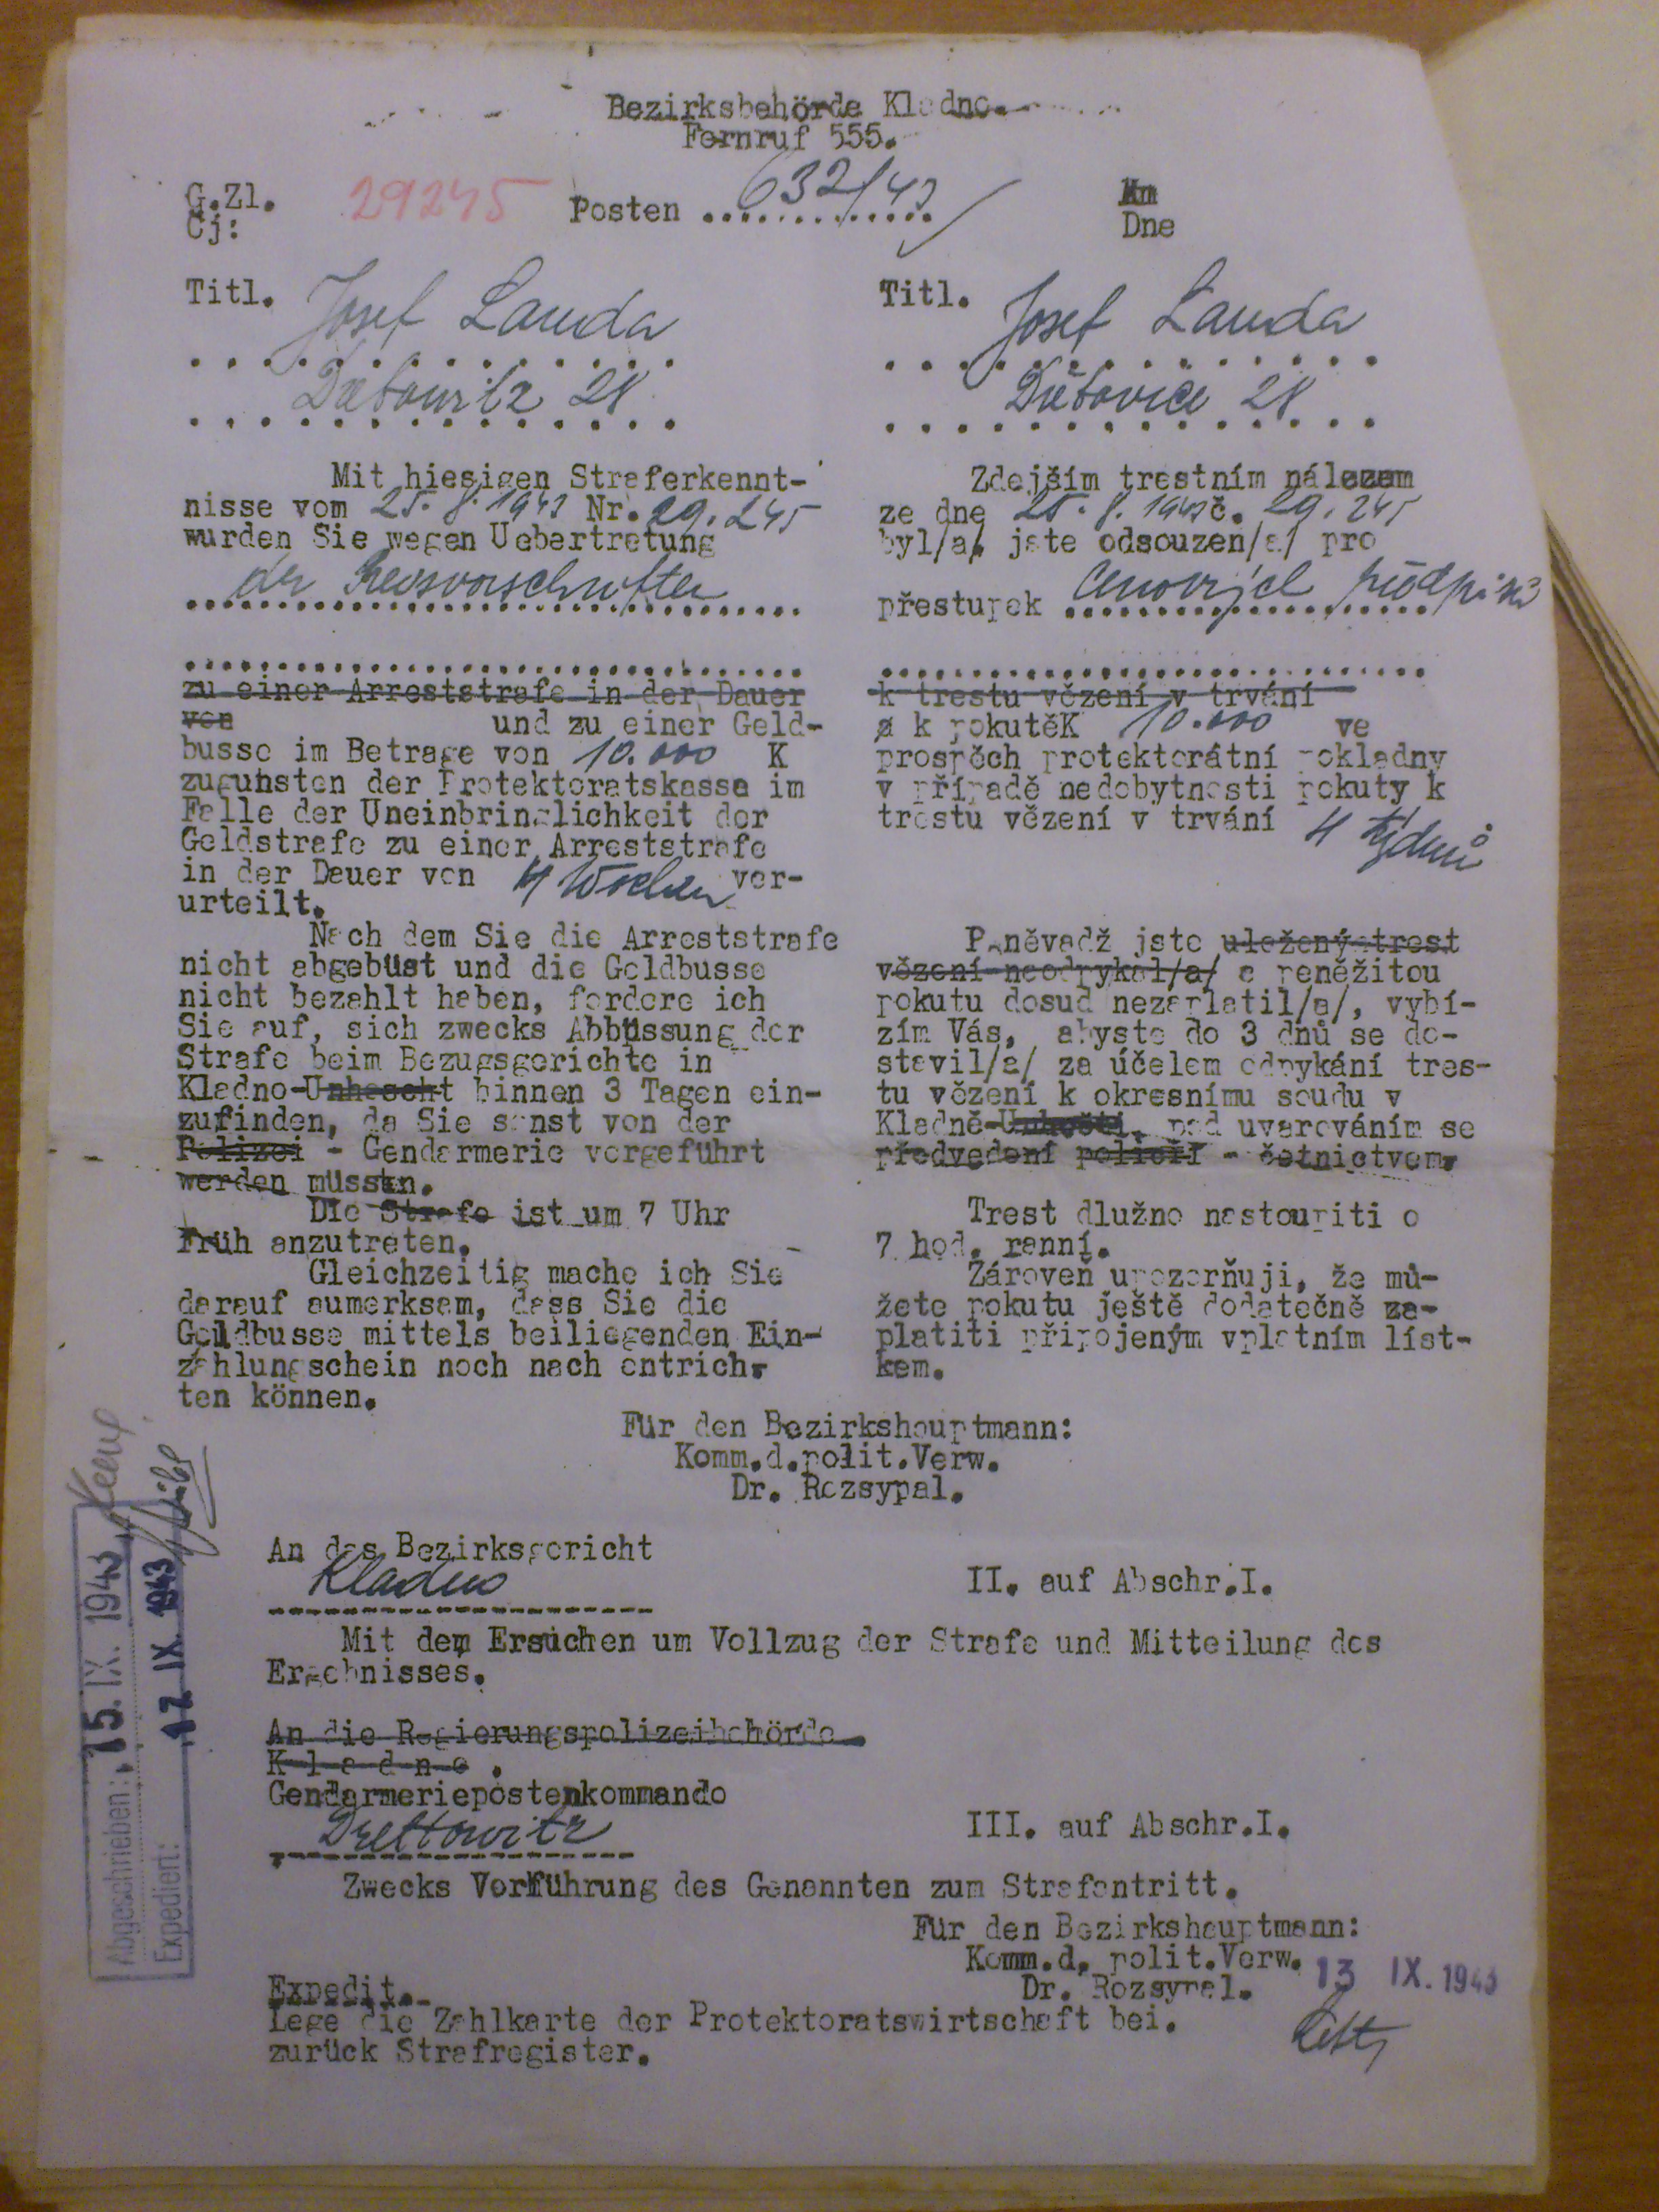 Bezirksbehörde Kladno.
Fernruf 555.
G.Zl. 29245 Posten 632/43 Am
Čj: Dne
Titl. Josef Lauda
Dretowitz 28
Titl. Josef Lauda
Dřetovice 28
Mit hiesigen Straferkennt-
nisse vom 25. 8. 1943 Nr. 29.245
wurden Sie wegen Uebertretung
der Preisvorschriften
zu einer Arreststrafe in der Dauer
von und zu einer Geld-
busse im Betrage von 10.000 K
zugunsten der Protektoratskassa im
Falle der Uneinbringlichkeit der
Geldstrafe zu einer Arreststrafe
in der Dauer von 4 Wochen ver-
urteilt.
Nach dem Sie die Arreststrafe
nicht abgebüst und die Geldbusse
nicht bezahlt haben, fordere ich
Sie auf, sich zwecks Abbüssung der
Strafe beim Bezugsgerichte in
Kladno-Unhoscht binnen 3 Tagen ein-
zufinden, da Sie sonst von der
Polizei - Gendarmerie vorgeführt
werden müssten.
Die Strafe ist um 7 Uhr
Früh anzutreten.
Gleichzeitig mache ich Sie
darauf aumerksam, dass Sie die
Geldbusse mittels beiliegenden Ein-
zahlungschein noch nach entrich-
ten können.
Zdejším trestním nálezem
ze dne 25. 8. 1943 č. 29.245
byl/a/ jste odsouzen/a/ pro
přestupek cenových předpisů
k trestu vězení v trvání
a k pokutěK 10.000 ve
prospěch protektorátní pokladny
v případě nedobytnosti pokuty k
trestu vězení v trvání 4 týdnů
Poněvadž jste uložený trest
vězení neodpykal/a/ a peněžitou
pokutu dosud nezaplatil/a/, vybí-
zím Vás, abyste do 3 dnů se do-
stavil/a/ za účelem odpykání tres-
tu vězení k okresnímu soudu v
Kladně-Unhošti, pod uvarováním se
předvedení policií - četnictvem.
Trest dlužno nastoupiti o
7 hod. ranní.
Zároveň upozorňuji, že mů-
žete pokutu ještě dodatečně za-
platiti připojeným vplatním líst-
kem.
Für den Bezirkshauptmann:
Komm.d.polit.Verw.
Dr. Rozsypal.
An das Bezirksgericht
Kladno
II. auf Abschr.I.
Mit dem Ersuchen um Vollzug der Strafe und Mitteilung des
Ergebnisses.
An die Regierungspolizeibehörde
K l a d n o .
Gendarmeriepostenkommando
Drettowitz
III. auf Abschr.I.
Zwecks Vorführung des Genannten zum Strafantritt.
Für den Bezirkshauptmann:
Komm.d. polit.Verw.
Dr. Rozsypal.
13 IX. 1943
Expedit.
Lege die Zahlkarte der Protektoratswirtschaft bei.
zurück Strafregister.
Abgeschrieben: 15. IX. 1943
Expediert: 17. IX. 1943